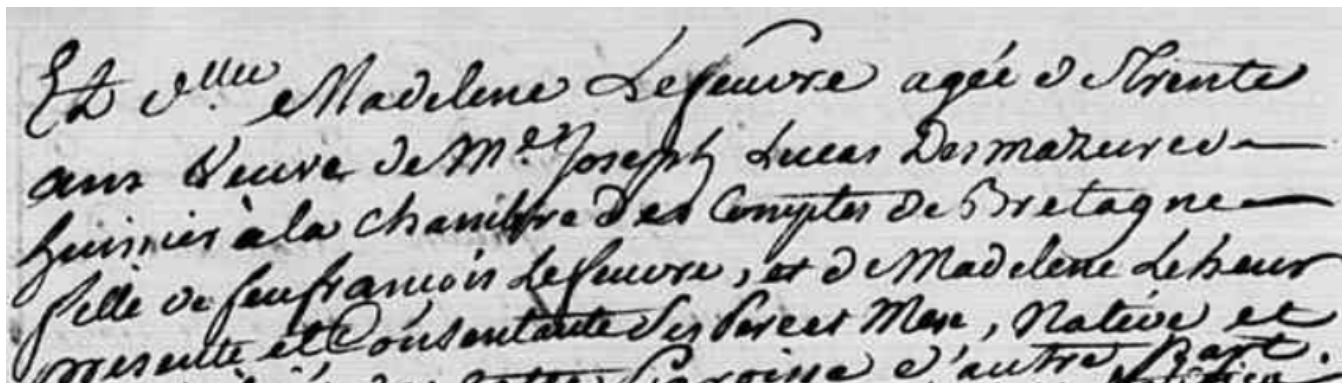 Et d.lle Madelene Lefeuvre agée de trente
ans veuve de M.e Joseph Lucas Desmazures
huissier à la chambre des Comptes de Bretagne
fille de feu françois Lefeuvre, et de Madelene Leheur
presente et Consentante ses Pere et Mere, Native et
cette Paroisse d'autre Part.